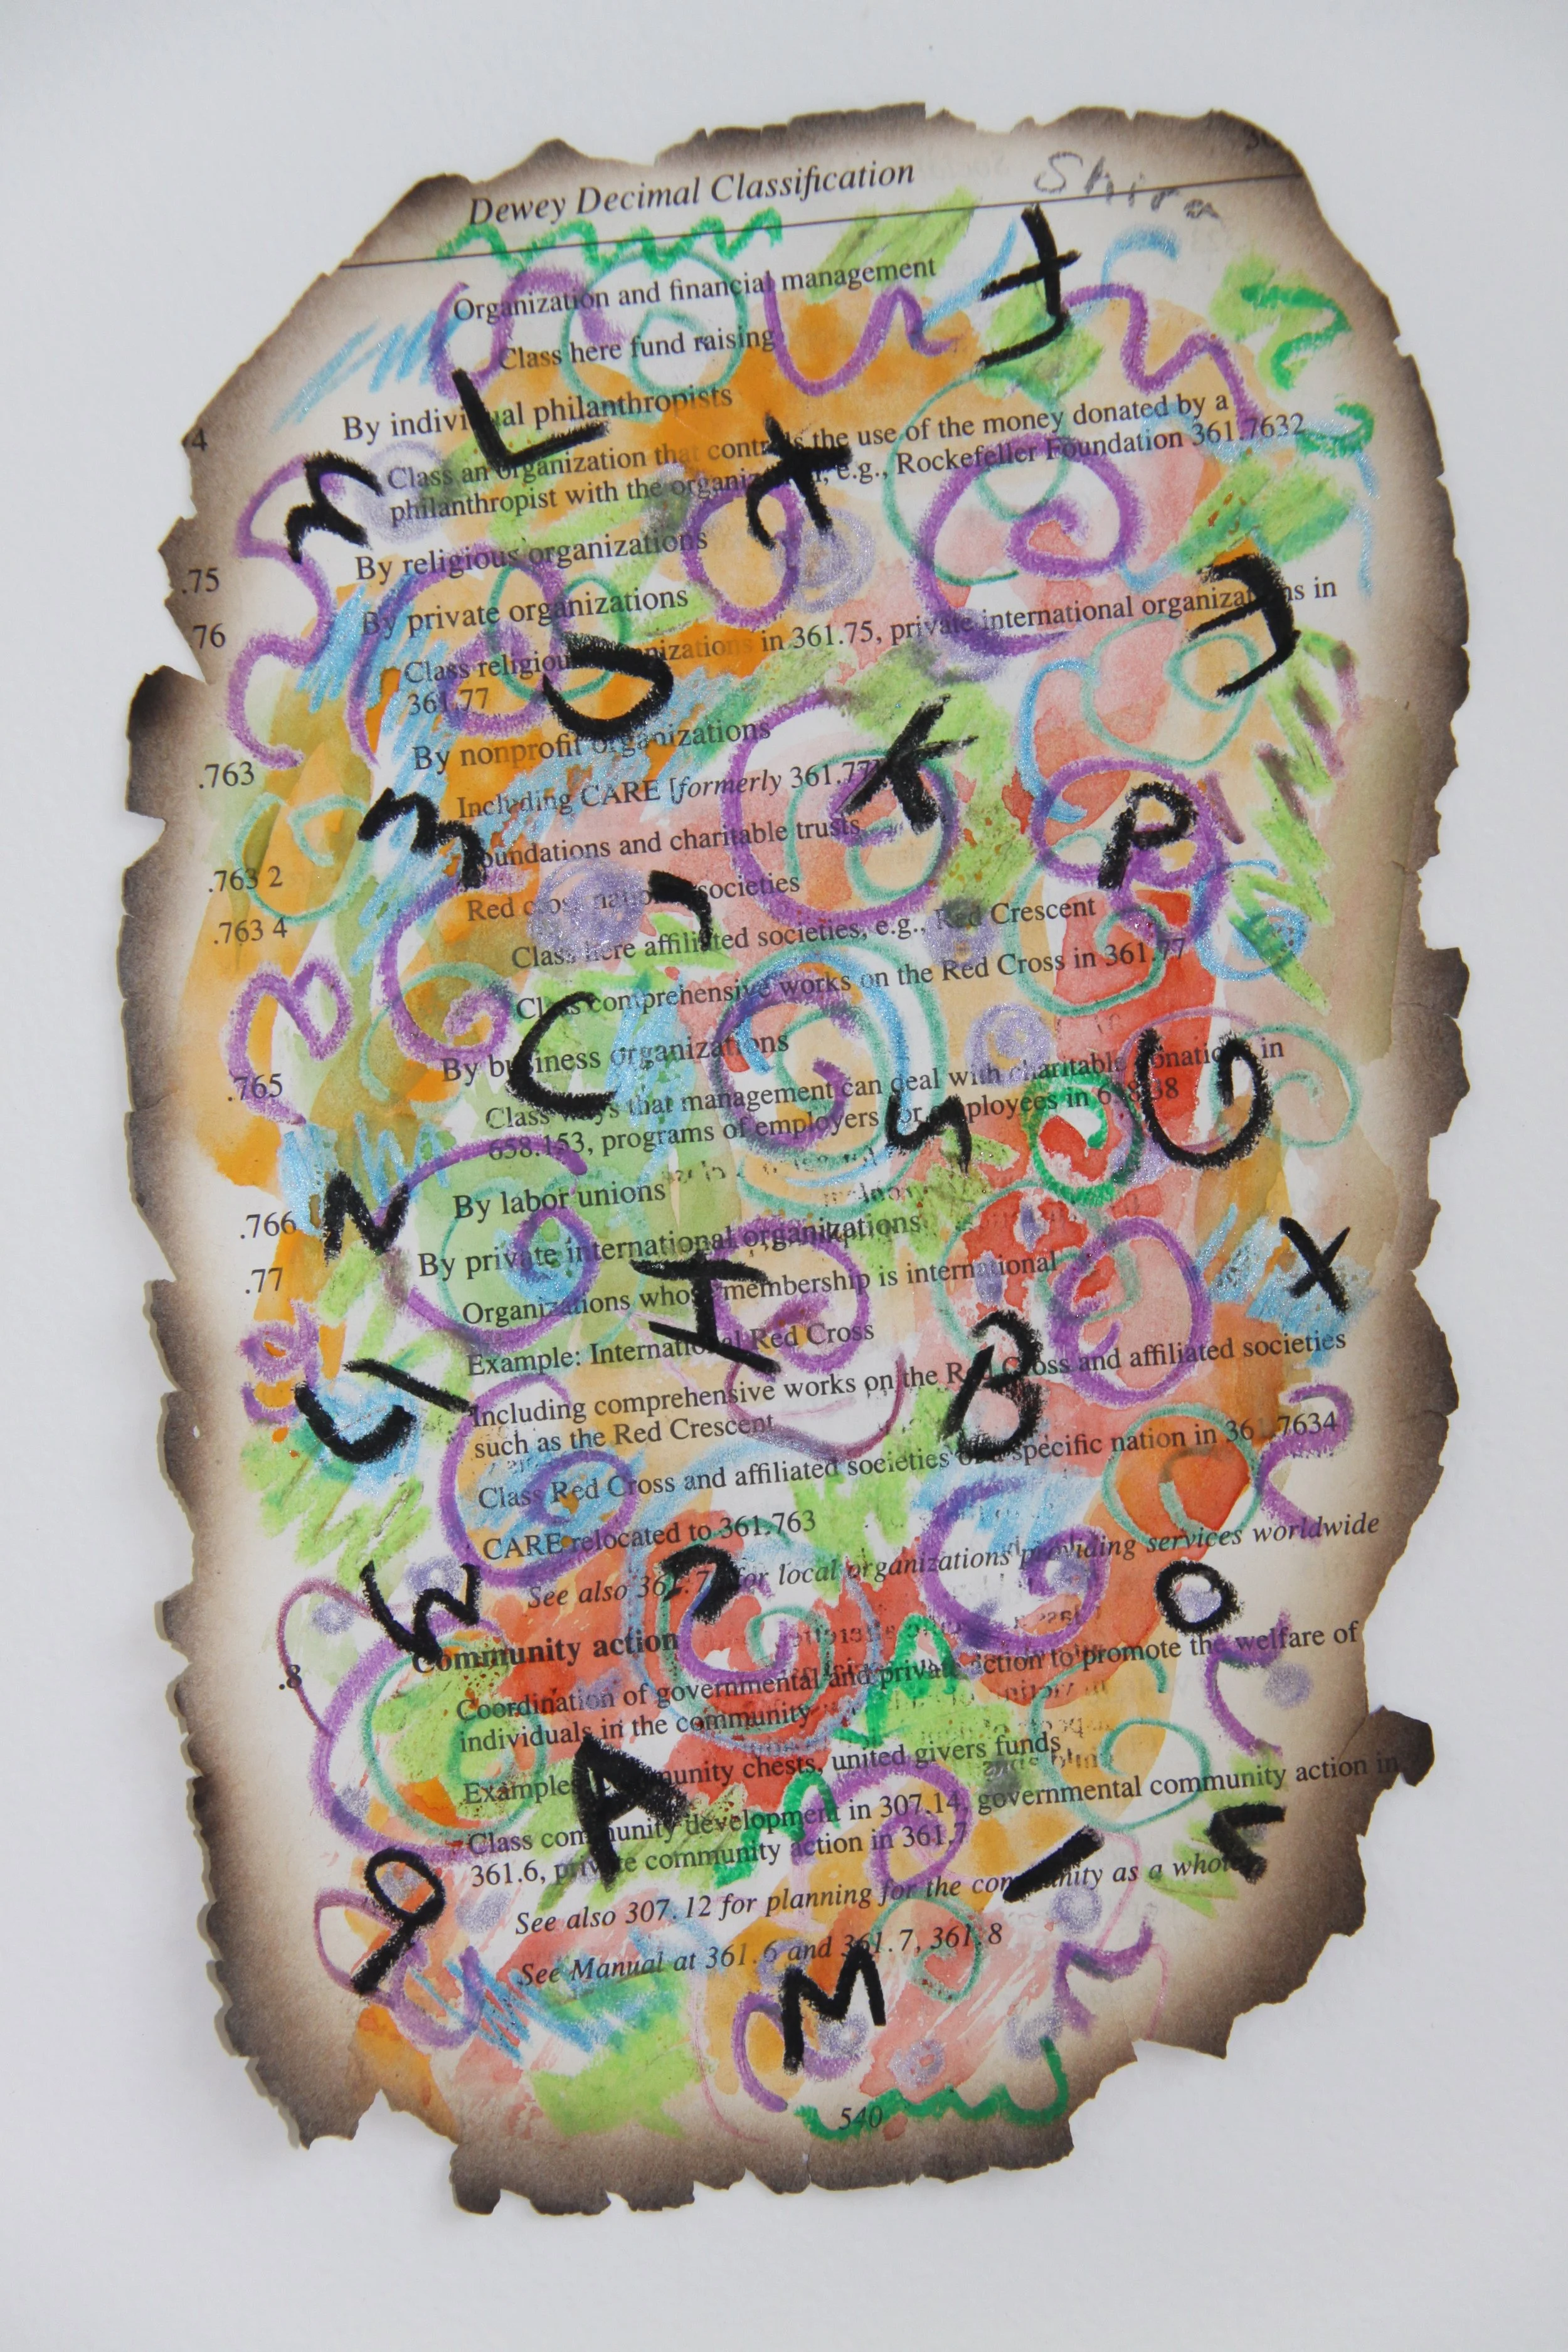 Dewey Decimal Classification
Shira
Organization and financial management
Class here fund raising
4 By individual philanthropists
Class an organization that controls the use of the money donated by a
philanthropist with the organization, e.g., Rockefeller Foundation 361.7632
.75 By religious organizations
76 By private organizations
Class religious organizations in 361.75, private international organizations in
361.77
.763 By nonprofit organizations
Including CARE [formerly 361.77]
.763 2 Foundations and charitable trusts
.763 4 Red cross national societies
Class here affiliated societies, e.g., Red Crescent
Class comprehensive works on the Red Cross in 361.77
.765 By business organizations
Class ways that management can deal with charitable donations in
658.153, programs of employers for employees in 658.38
.766 By labor unions
.77 By private international organizations
Organizations whose membership is international
Example: International Red Cross
Including comprehensive works on the Red Cross and affiliated societies
such as the Red Crescent
Class Red Cross and affiliated societies of a specific nation in 361.7634
CARE relocated to 361.763
See also for local organizations providing services worldwide
.8 Community action
Coordination of governmental and private action to promote the welfare of
individuals in the community
Examples: community chests, united givers funds
Class community development in 307.14, governmental community action in
361.6, private community action in 361.7
See also 307.12 for planning for the community as a whole
See Manual at 361.6 and 361.7, 361.8
540
L
K
P
C
N
X
B
W
O
A
M